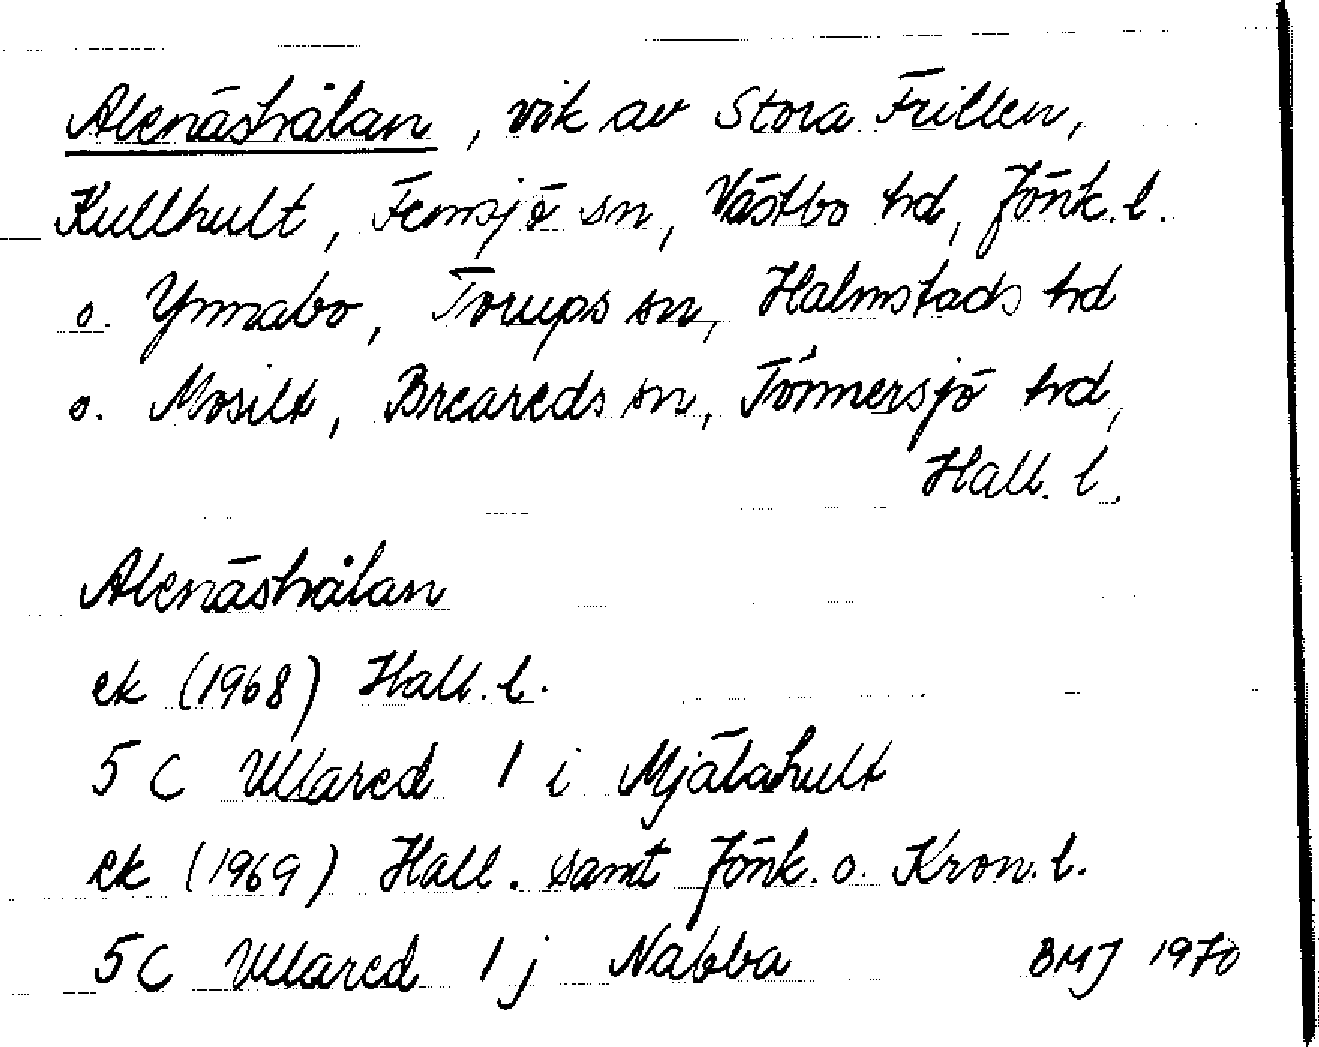 Alenäshålan, vik av Stora Frillen,
Kullhult, Femsjö sn, Västbo hd, Jönk. l.
o. Ynnabo, Torups sn, Halmstads hd
o. Mosilt, Breareds sn, Tönnersjö hd,
Hall. l.
Alenäshålan
ek (1968) Hall. l.
5 C Ullared 1 i Mjälahult
ek (1969) Hall. samt Jönk. o. Kron. l.
5C Ullared 1 j Nabba BMJ 1970